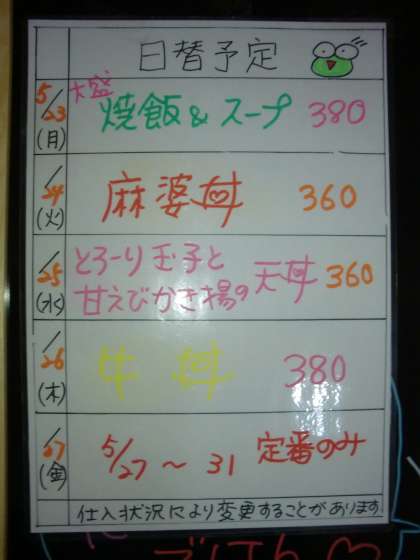 日替予定
5/23 (月) 大盛 焼飯&スープ 380
/24 (火) 麻婆丼 360
/25 (水) とろーり玉子と
甘えびかき揚の天丼 360
/26 (木) 牛丼 380
/27 (金) 5/27～31 定番のみ
仕入状況により変更することがあります
ごはん